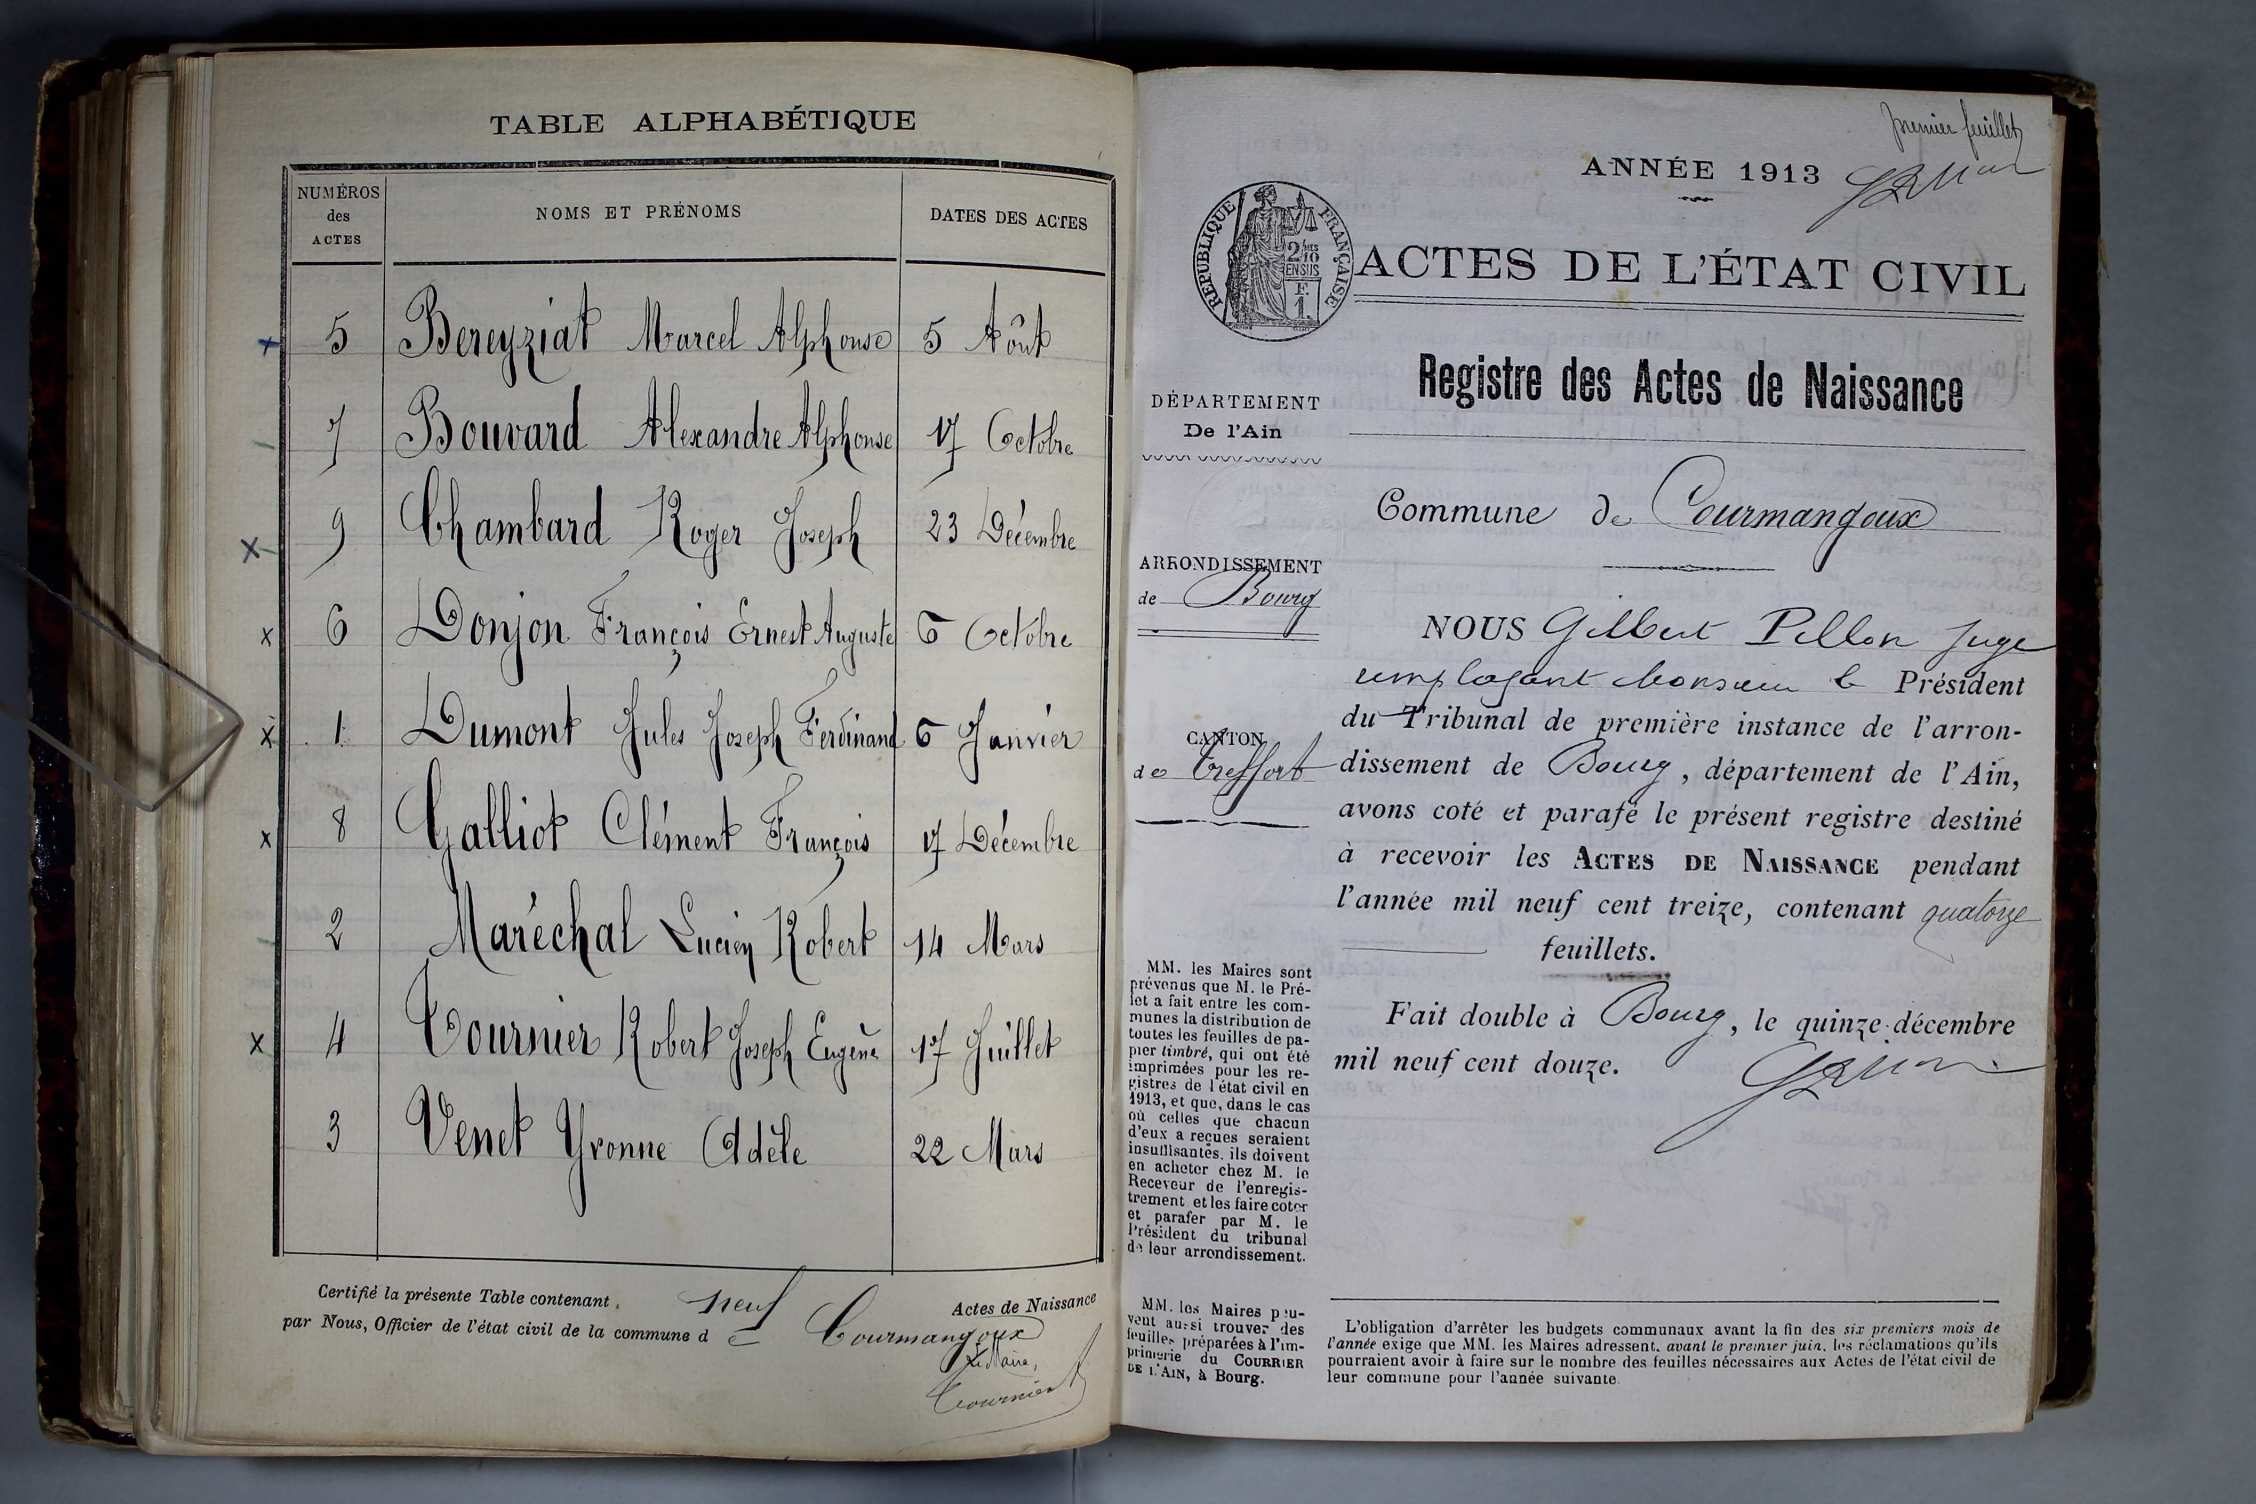 TABLE ALPHABÉTIQUE
NUMÉROS
des
ACTES
NOMS ET PRÉNOMS
DATES DES ACTES
5 Bereyziat Marcel Alphonse 5 Août
7 Bouvard Alexandre Alphonse 17 Octobre
9 Chambard Roger Joseph 23 Décembre
6 Donjon François Ernest Auguste 6 Octobre
1 Dumont Jules Joseph Ferdinand 6 Janvier
8 Galliot Clément François 17 Décembre
2 Maréchal Lucien Robert 14 Mars
4 Tournier Robert Joseph Eugène 17 Juillet
3 Venet Yvonne Adèle 22 Mars
Certifié la présente Table contenant neuf Actes de Naissance
par Nous, Officier de l'état civil de la commune de Courmangoux
Le Maire,
Tournier
premier feuillet
ANNÉE 1913
RÉPUBLIQUE FRANÇAISE
2/10
MES
EN SUS
F.
1.
ACTES DE L'ÉTAT CIVIL
Registre des Actes de Naissance
DÉPARTEMENT
De l'Ain
Commune de Courmangoux
ARRONDISSEMENT
de Bourg
CANTON
de Treffort
NOUS Gilbert Pillon Juge
remplaçant Monsieur le Président
du Tribunal de première instance de l'arron-
dissement de Bourg, département de l'Ain,
avons coté et parafé le présent registre destiné
à recevoir les ACTES DE NAISSANCE pendant
l'année mil neuf cent treize, contenant quatorze
feuillets.
Fait double à Bourg, le quinze décembre
mil neuf cent douze.
MM. les Maires sont
prévenus que M. le Pré-
fet a fait entre les com-
munes la distribution de
toutes les feuilles de pa-
pier timbré, qui ont été
imprimées pour les re-
gistres de l'état civil en
1913, et que, dans le cas
où celles que chacun
d'eux a reçues seraient
insuffisantes, ils doivent
en acheter chez M. le
Receveur de l'enregis-
trement et les faire coter
et parafer par M. le
Président du tribunal
de leur arrondissement.
MM. les Maires peu-
vent aussi trouver des
feuilles préparées à l'im-
primerie du COURRIER
DE L'AIN, à Bourg.
L'obligation d'arrêter les budgets communaux avant la fin des six premiers mois de
l'année exige que MM. les Maires adressent, avant le premier juin, les réclamations qu'ils
pourraient avoir à faire sur le nombre des feuilles nécessaires aux Actes de l'état civil de
leur commune pour l'année suivante.